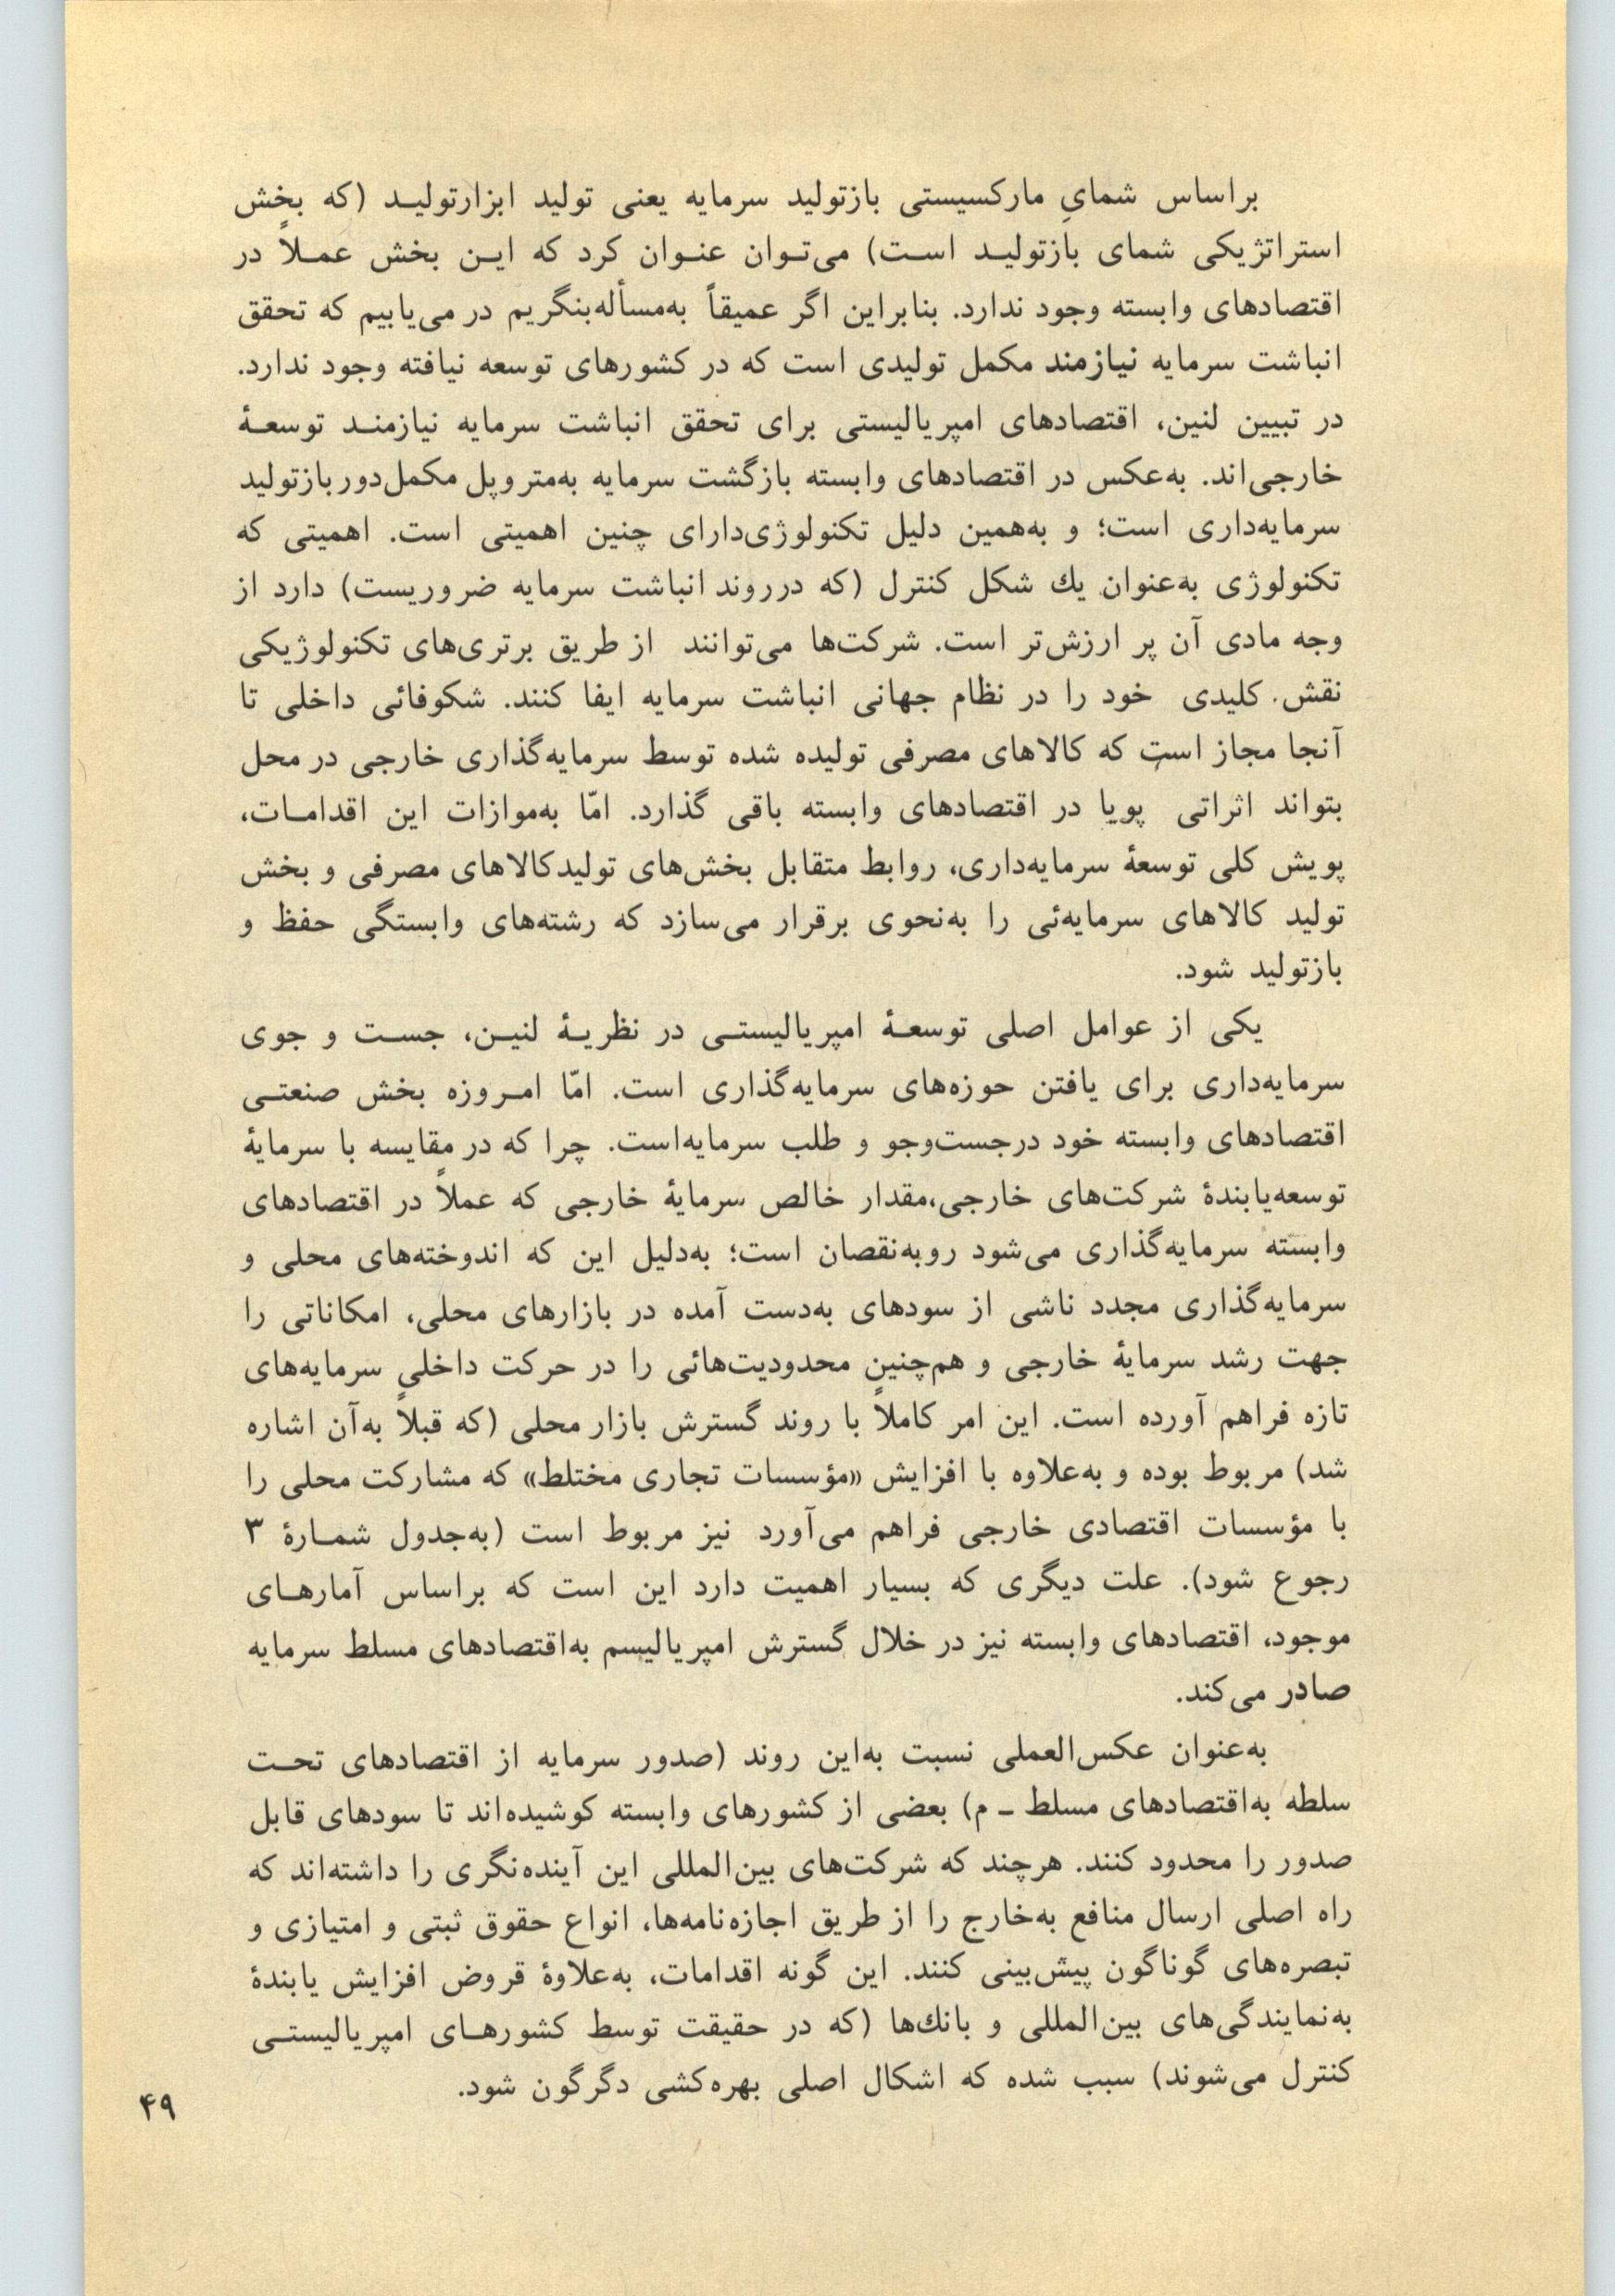 براساس شمایِ مارکسیستی بازتولید سرمایه یعنی تولید ابزارتولیـد (که بخش
استراتژیکی شمای بازتولیـد اسـت) می‌تـوان عنـوان کرد که ایـن بخش عمـلاً در
اقتصادهای وابسته وجود ندارد. بنابراین اگر عمیقاً به‌مسأله‌بنگریم در می‌یابیم که تحقق
انباشت سرمایه نیازمند مکمل تولیدی است که در کشورهای توسعه نیافته وجود ندارد.
در تبیین لنین، اقتصادهای امپریالیستی برای تحقق انباشت سرمایه نیازمنـد توسعـهٔ
خارجی‌اند. به‌عکس در اقتصادهای وابسته بازگشت سرمایه به‌متروپل مکمل‌دوربازتولید
سرمایه‌داری است؛ و به‌همین دلیل تکنولوژی‌دارای چنین اهمیتی است. اهمیتی که
تکنولوژی به‌عنوان یك شکل کنترل (که درروند انباشت سرمایه ضروریست) دارد از
وجه مادی آن پر ارزش‌تر است. شرکت‌ها می‌توانند از طریق برتری‌های تکنولوژیکی
نقش کلیدی خود را در نظام جهانی انباشت سرمایه ایفا کنند. شکوفائی داخلی تا
آنجا مجاز است که کالاهای مصرفی تولیده شده توسط سرمایه‌گذاری خارجی در محل
بتواند اثراتی پویا در اقتصادهای وابسته باقی گذارد. امّا به‌موازات این اقدامـات،
پویش کلی توسعهٔ سرمایه‌داری، روابط متقابل بخش‌های تولیدکالاهای مصرفی و بخش
تولید کالاهای سرمایه‌ئی را به‌نحوی برقرار می‌سازد که رشته‌های وابستگی حفظ و
بازتولید شود.
یکی از عوامل اصلی توسعـهٔ امپریالیستـی در نظریـهٔ لنیـن، جسـت و جوی
سرمایه‌داری برای یافتن حوزه‌های سرمایه‌گذاری است. امّا امـروزه بخش صنعتـی
اقتصادهای وابسته خود درجست‌وجو و طلب سرمایه‌است. چرا که در مقایسه با سرمایهٔ
توسعه‌یابندهٔ شرکت‌های خارجی،مقدار خالص سرمایهٔ خارجی که عملاً در اقتصادهای
وابسته سرمایه‌گذاری می‌شود روبه‌نقصان است؛ به‌دلیل این که اندوخته‌های محلی و
سرمایه‌گذاری مجدد ناشی از سودهای به‌دست آمده در بازارهای محلی، امکاناتی را
جهت رشد سرمایهٔ خارجی و هم‌چنین محدودیت‌هائی را در حرکت داخلی سرمایه‌های
تازه فراهم آورده است. این امر کاملاً با روند گسترش بازار محلی (که قبلاً به‌آن اشاره
شد) مربوط بوده و به‌علاوه با افزایش «مؤسسات تجاری مختلط» که مشارکت محلی را
با مؤسسات اقتصادی خارجی فراهم می‌آورد نیز مربوط است (به‌جدول شمـارهٔ ۳
رجوع شود). علت دیگری که بسیار اهمیت دارد این است که براساس آمارهـای
موجود، اقتصادهای وابسته نیز در خلال گسترش امپریالیسم به‌اقتصادهای مسلط سرمایه
صادر می‌کند.
به‌عنوان عکس‌العملی نسبت به‌این روند (صدور سرمایه از اقتصادهای تحـت
سلطه به‌اقتصادهای مسلط ـ م) بعضی از کشورهای وابسته کوشیده‌اند تا سودهای قابل
صدور را محدود کنند. هرچند که شرکت‌های بین‌المللی این آینده‌نگری را داشته‌اند که
راه اصلی ارسال منافع به‌خارج را از طریق اجازه‌نامه‌ها، انواع حقوق ثبتی و امتیازی و
تبصره‌های گوناگون پیش‌بینی کنند. این گونه اقدامات، به‌علاوهٔ قروض افزایش یابندهٔ
به‌نمایندگی‌های بین‌المللی و بانك‌ها (که در حقیقت توسط کشورهـای امپریالیستـی
کنترل می‌شوند) سبب شده که اشکال اصلی بهره‌کشی دگرگون شود.
۴۹